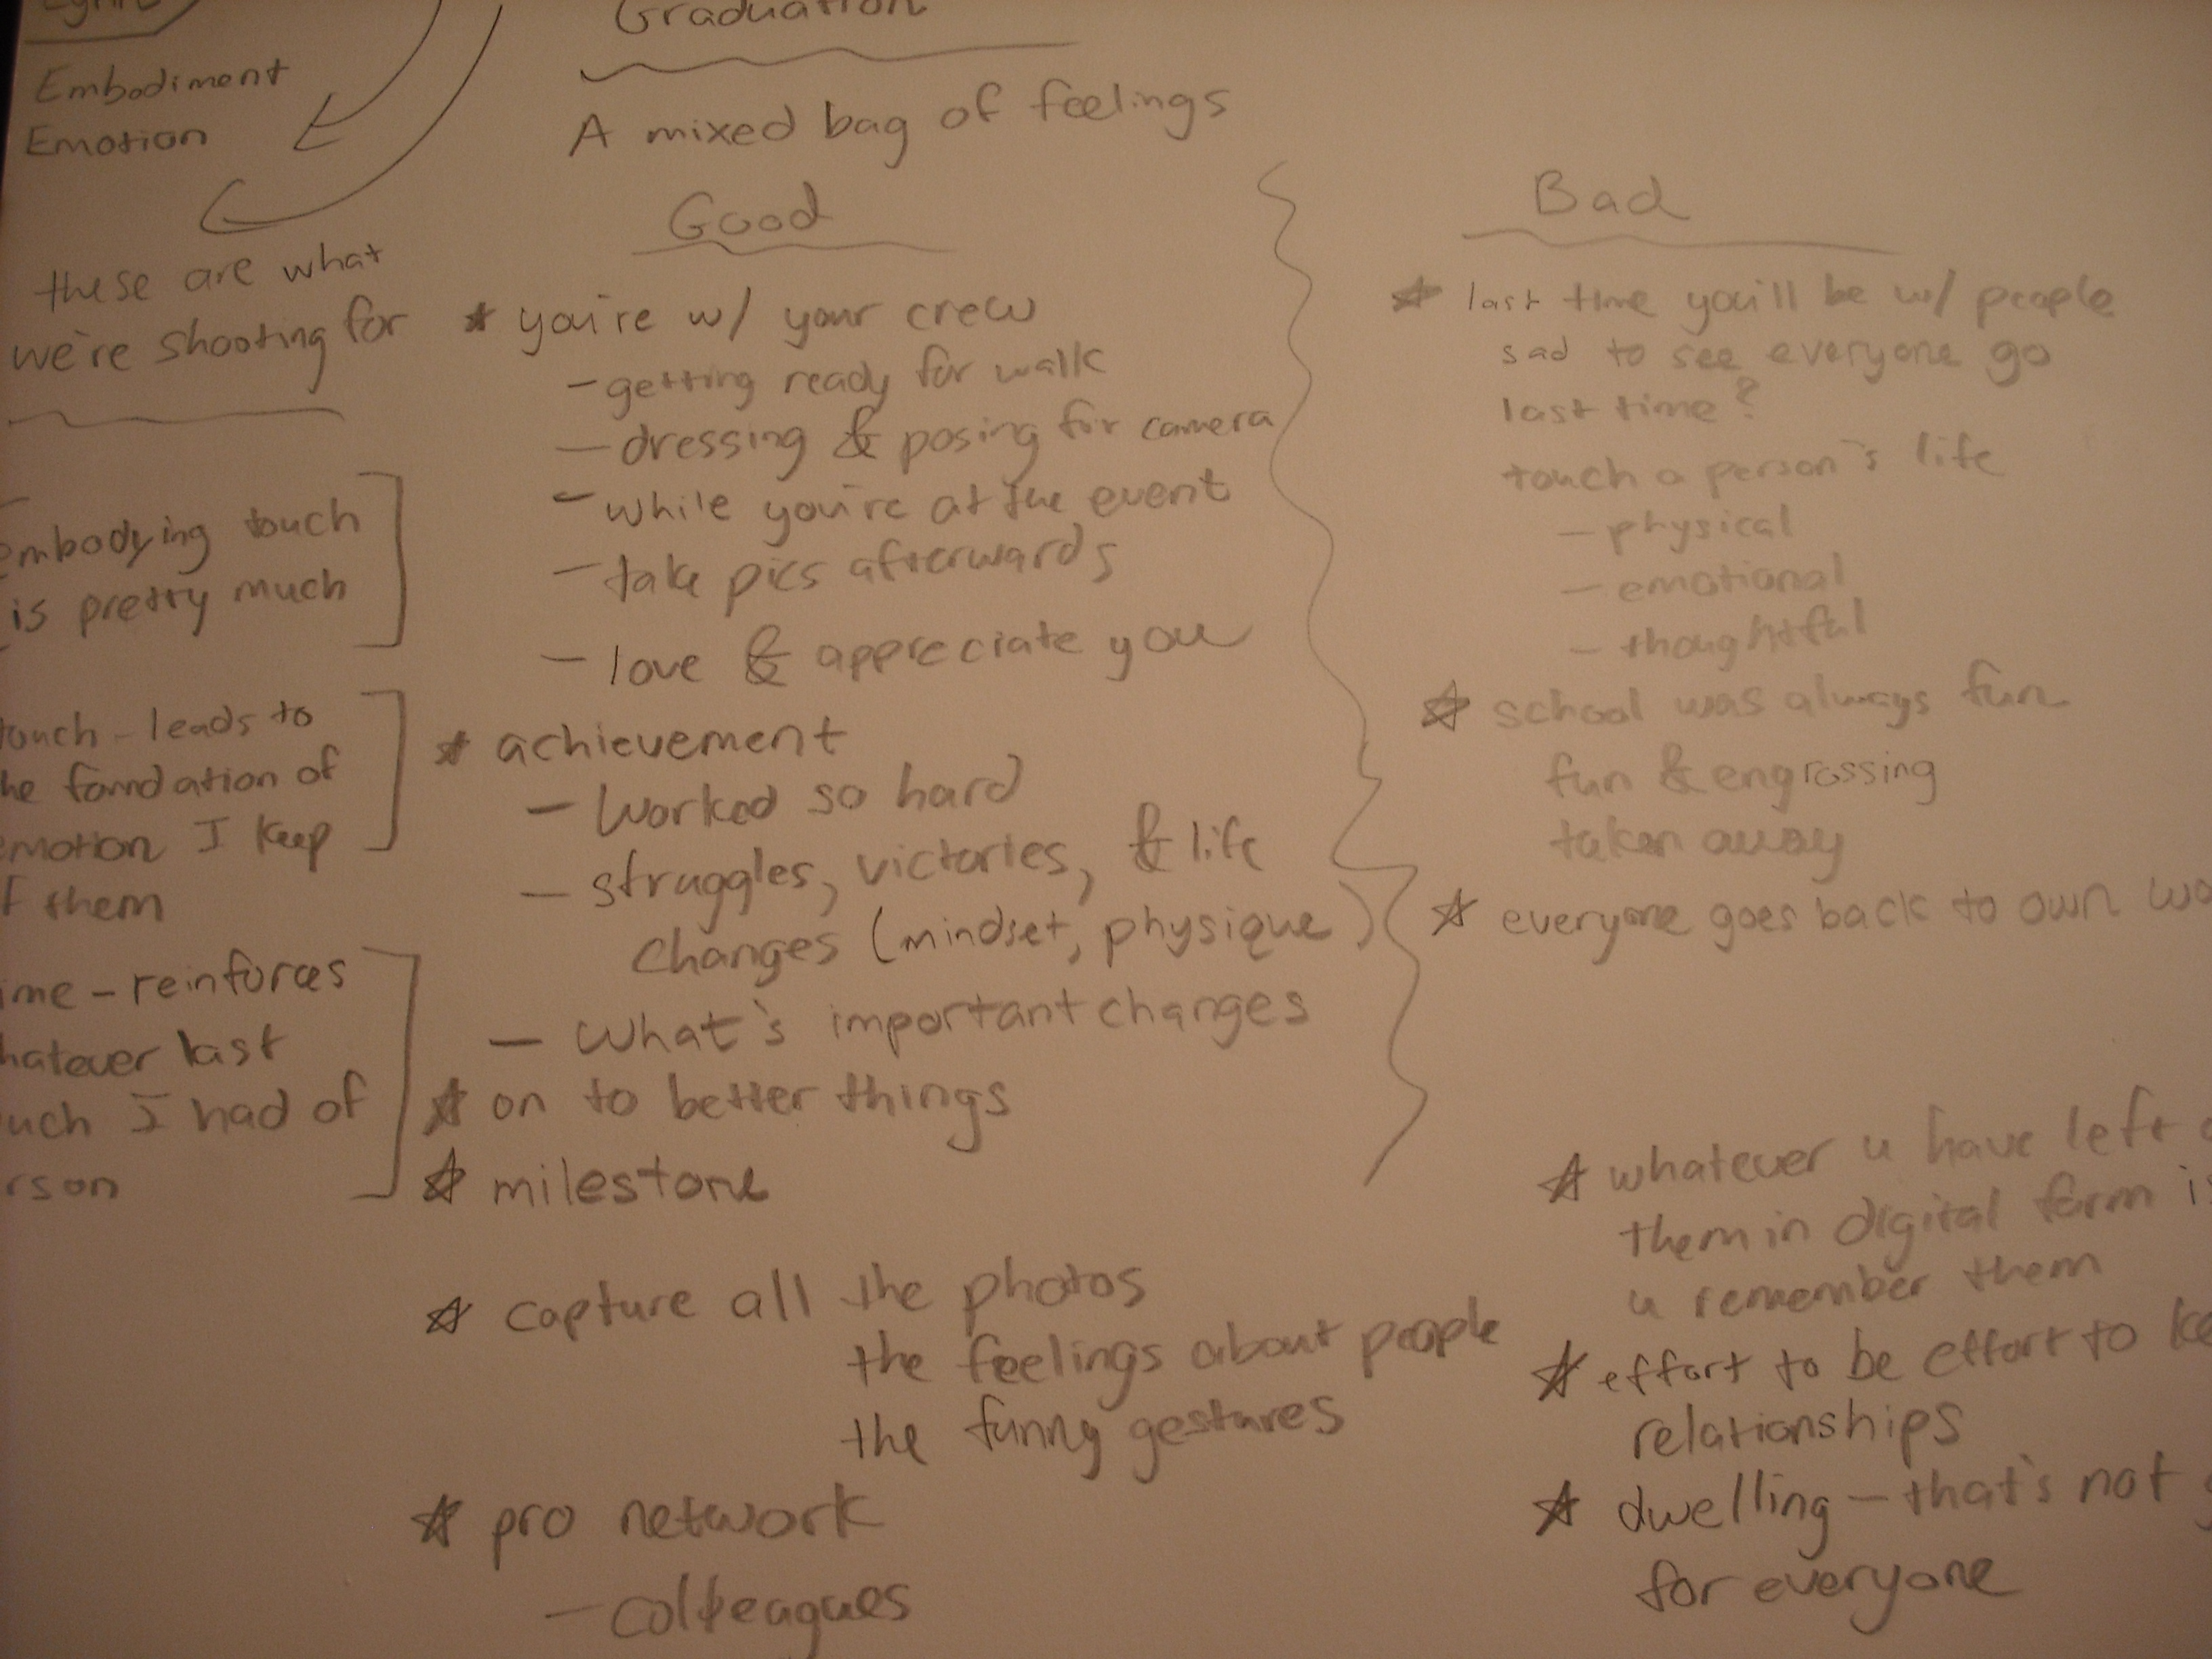 Embodiment
Emotion
these are what
we're shooting for
embodying touch
is pretty much
touch - leads to
the foundation of
emotion I keep
of them
- reinforces
whatever last
touch I had of
Graduation
A mixed bag of feelings
Good
you're w/ your crew
- getting ready for walk
- dressing & posing for camera
- while you're at the event
- take pics afterwards
- love & appreciate you
achievement
- Worked so hard
- struggles, victories, & life
changes (mindset, physique)
- What's important changes
on to better things
milestone
capture all the photos
the feelings about people
the funny gestures
pro network
- colleagues
Bad
last time you'll be w/ people
sad to see everyone go
last time?
touch a person's life
- physical
- emotional
- thoughtful
school was always fun
fun & engrossing
taken away
everyone goes back to own
whatever u have left
them in digital form
u remember them
effort to be effort to
relationships
dwelling - that's not
for everyone